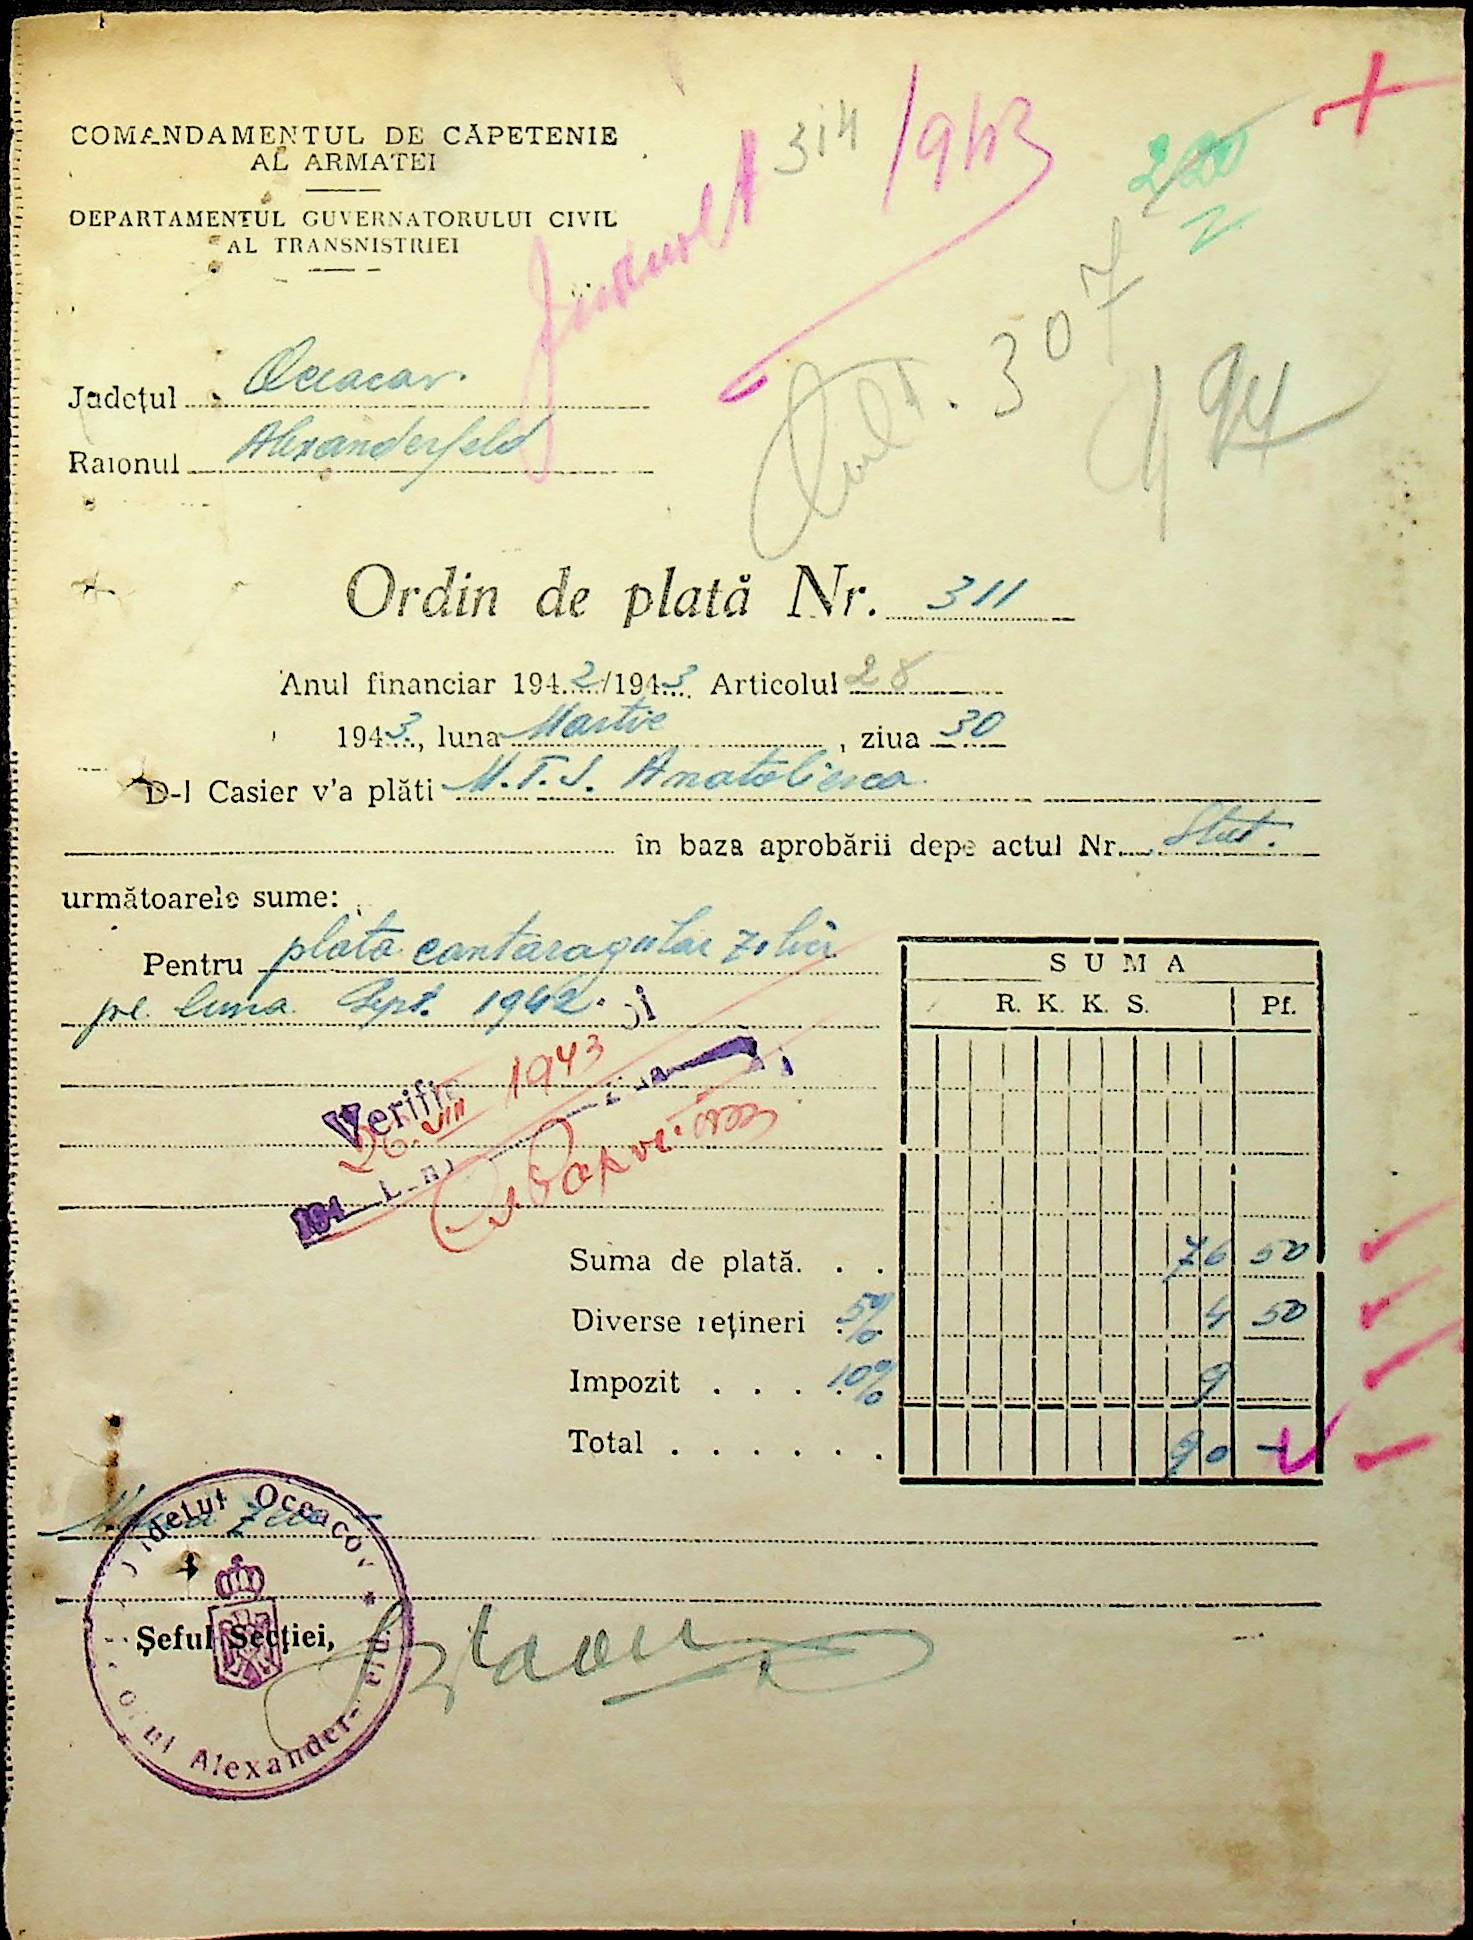 COMANDAMENTUL DE CĂPETENIE
AL ARMATEI
DEPARTAMENTUL GUVERNATORULUI CIVIL
AL TRANSNISTRIEI
314
1943
220
307
494
Județul Oceacov
Raionul Alexanderfeld
Ordin de plată Nr. 311
Anul financiar 1942/1943 Articolul 28
1943, luna Martie, ziua 30
D-l Casier v'a plăti M.T.S.
în baza aprobării depe actul Nr. Stat.
următoarele sume:
Pentru plata cantaragiilor
pe luna Sept. 1942
SUMA
R. K. K. S. Pf.
Verific
26 VIII 1943
194
Suma de plată. . . 76 50
Diverse rețineri 5% 4 50
Impozit . . . 10% 9
Total . . . . . . 90 -
Județul Oceacov
Alexander-
Șeful Secției,